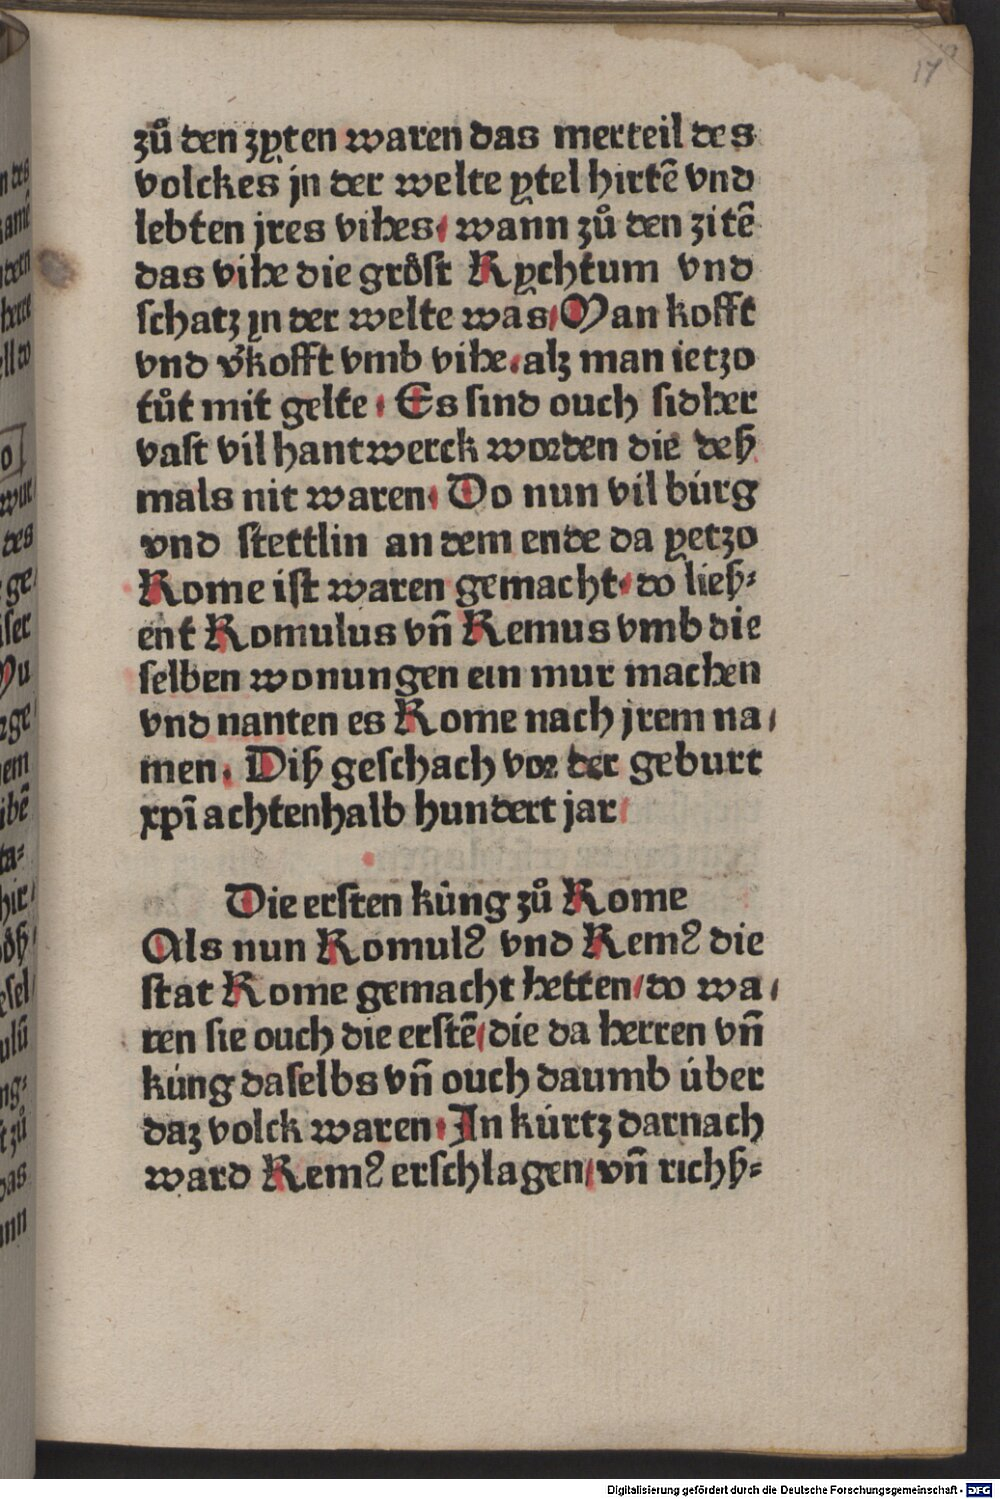 17
zů den zyten waren das merteil des
volckes jn der welte ytel hirtē vnd
lebten jres vihes/ wann zů den zitē
das vihe die grôſt Rychtum vnd
ſchatz yn der welte was/ Man kofft
vnd v̄kofft vmb vihe. alz man ietzo
tůt mit gelte. Es ſind ouch ſidher
vaſt vil hantwerck worden die deß
mals nit waren. Do nun vil búrg
vnd ſtettlin an dem ende da yetzo
Rome iſt waren gemacht. do lieſſ⸗
ent Romulus vn̄ Remus vmb die
ſelben wonungen ein mur machen
vnd nanten es Rome nach jrem na/
men. Diß geſchach vor der geburt
xp̄i achtenhalb hundert jar/
Die erſten kúng zů Rome
Als nun Romulꝰ vnd Remꝰ die
ſtat Rome gemacht hetten/ do wa/
ren ſie ouch die erſtē/ die da herren vn̄
kúng daſelbs vn̄ ouch daumb úber
daz volck waren. In kúrtz darnach
ward Remꝰ erſchlagen/ vn̄ richß⸗
Digitalisierung gefördert durch die Deutsche Forschungsgemeinschaft - DFG